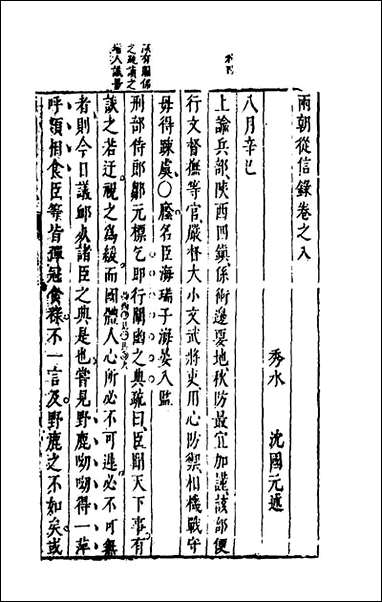 兩朝從信錄卷之八
秀水 沈國元述
八月辛巳
上諭兵部陝西四鎮係衝邊要地秋防最宜加謹該部便
行文督撫等官嚴督大小文武將吏用心防禦相機戰守
毋得踈虞○廕名臣海瑞子海晏入監
刑部侍郎鄒元標乞即行闡幽之典疏曰臣聞天下事有
談之若迂視之爲緩而國體人心所必不可遲必不可無
者則今日議䘏諸臣之典是也嘗見野鹿呦呦得一萍
呼類相食臣等皆彈冠食祿不一言及野鹿之不如矣或